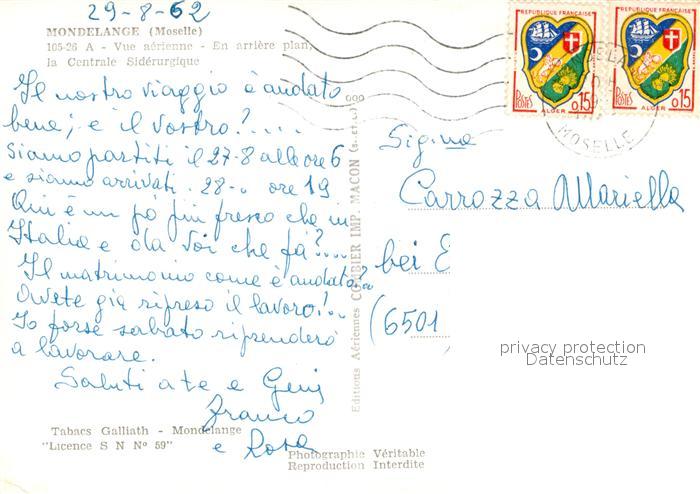 29-8-62
MONDELANGE (Moselle)
105-26 A - Vue aérienne - En arrière plan,
la Centrale Sidérurgique
Il nostro viaggio è andato
bene; e il vostro?....
Siamo partiti il 27-8 alle ore 6
e siamo arrivati . 28-.. ore 19
Qui è un po piu fresco che in
Italia e da voi che fa?....
Il matrimonio come è andato?..
Avete gia ripreso il lavoro?..
Io forse sabato riprenderò
a lavorare.
Saluti a te e
Franco
e Rosa
Tabacs Galliath - Mondelange
"Licence S N Nº 59"
Editions Aériennes COMBIER IMP. MACON (S.-et-L.)
000
Photographie Véritable
Reproduction Interdite
REPUBLIQUE FRANÇAISE
POSTES
0,15
ALGER
REPUBLIQUE FRANÇAISE
POSTES
0,15
ALGER
MOSELLE
Sig.na
Carrozza Mariella
bei E
(6501
privacy protection
Datenschutz